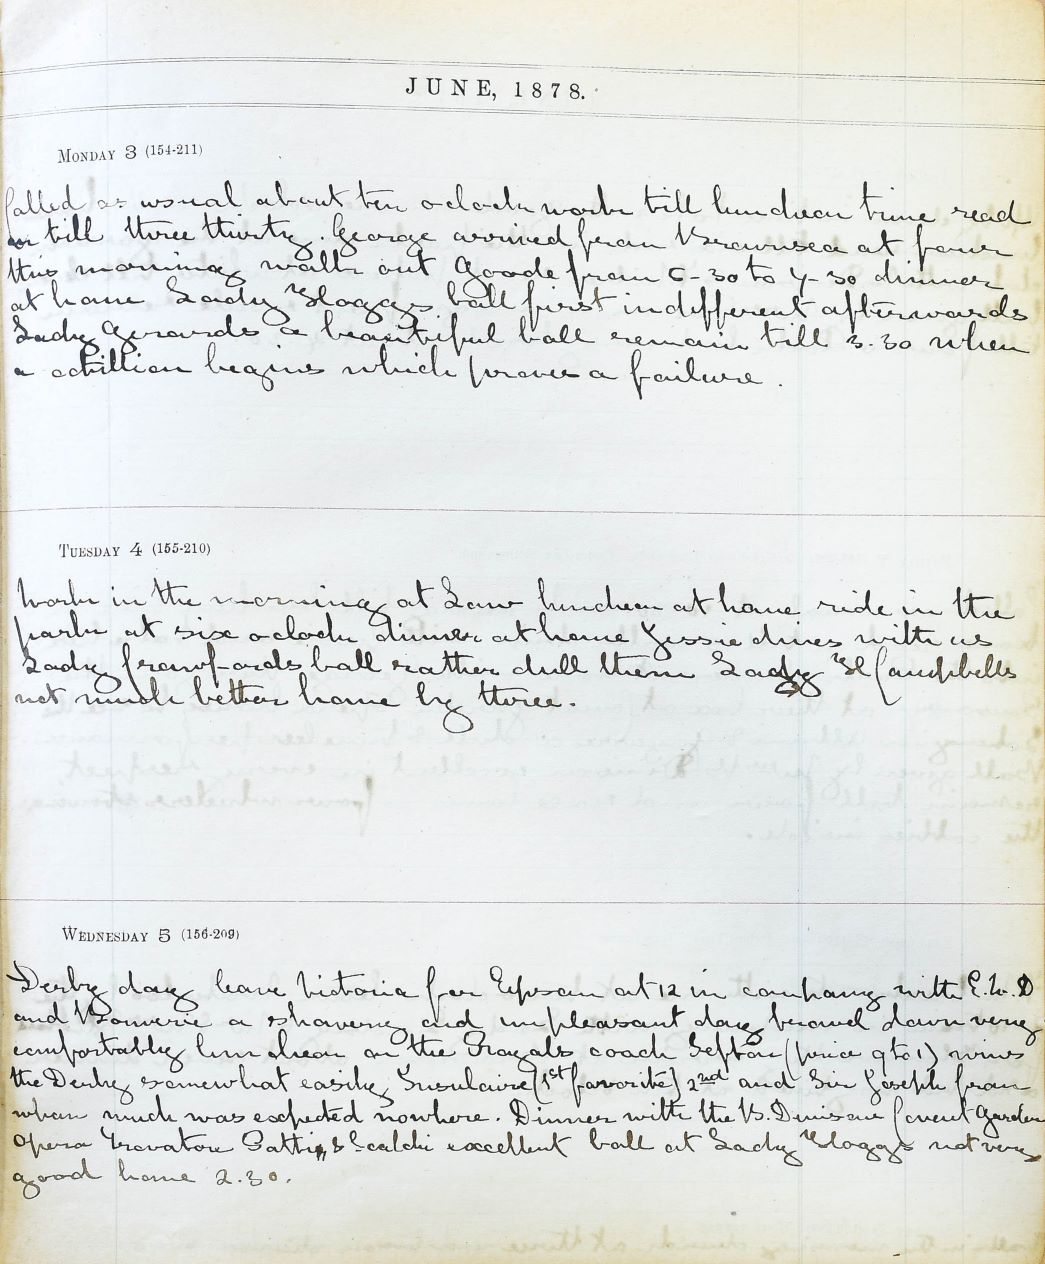 JUNE, 1878.
MONDAY 3 (154-211)
Called as usual about ten oclock work till luncheon time read
till three thirty. George arrived from Brownsea at four
this morning walk out Goode from 6-30 to 7-30 dinner
at home Lady Hoggs ball first indifferent afterwards
Lady Gerards a beautiful ball remain till 3.30 when
a cotillion begins which proves a failure.
TUESDAY 4 (155-210)
Work in the morning at Law luncheon at home ride in the
park at six oclock dinner at home Jessie dines with us
Lady Crawfords ball rather dull then Lady H Campbells
not much better home by three.
WEDNESDAY 5 (156-209)
Derby day leave Victoria for Epsom at 12 in company with E.W.D
and Bouverie a showery and unpleasant day travel down very
comfortably luncheon on the Royals coach Sefton (price 9 to 1) wins
the Derby somewhat easily Insulaire (1st favorite) 2nd and Sir Joseph from
whom much was expected nowhere. Dinner with the B. Denisons Covent Garden
Opera Trovatore Patti, & Scalchi excellent ball at Lady Hoggs not very
good home 2.30.